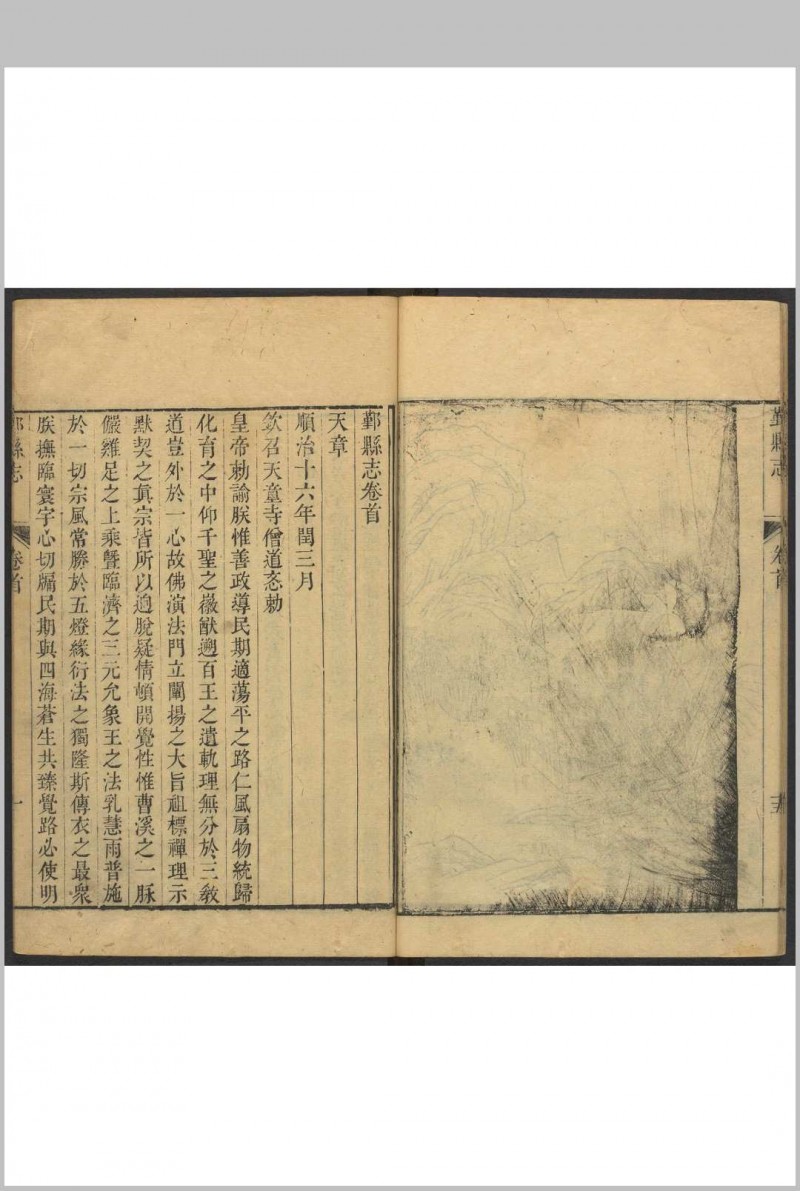 鄞縣志
卷首
鄞縣志卷首
天章
順治十六年閏三月
欽召天童寺僧道忞勅
皇帝勅諭朕惟善政導民期適蕩平之路仁風扇物統歸
化育之中仰千聖之微猷遡百王之遺軌理無分於三教
道豈外於一心故佛演法門立闡揚之大旨祖標禪理示
默契之眞宗皆所以逈脫疑情頓開覺性惟曹溪之一脉
儼雞足之上乘曁臨濟之三元允象王之法乳慧雨普施
於一切宗風常勝於五燈緣衍法之獨隆斯傳衣之最衆
朕撫臨寰宇心切牖民期與四海蒼生共臻覺路必使明
鄞縣志
卷首
一